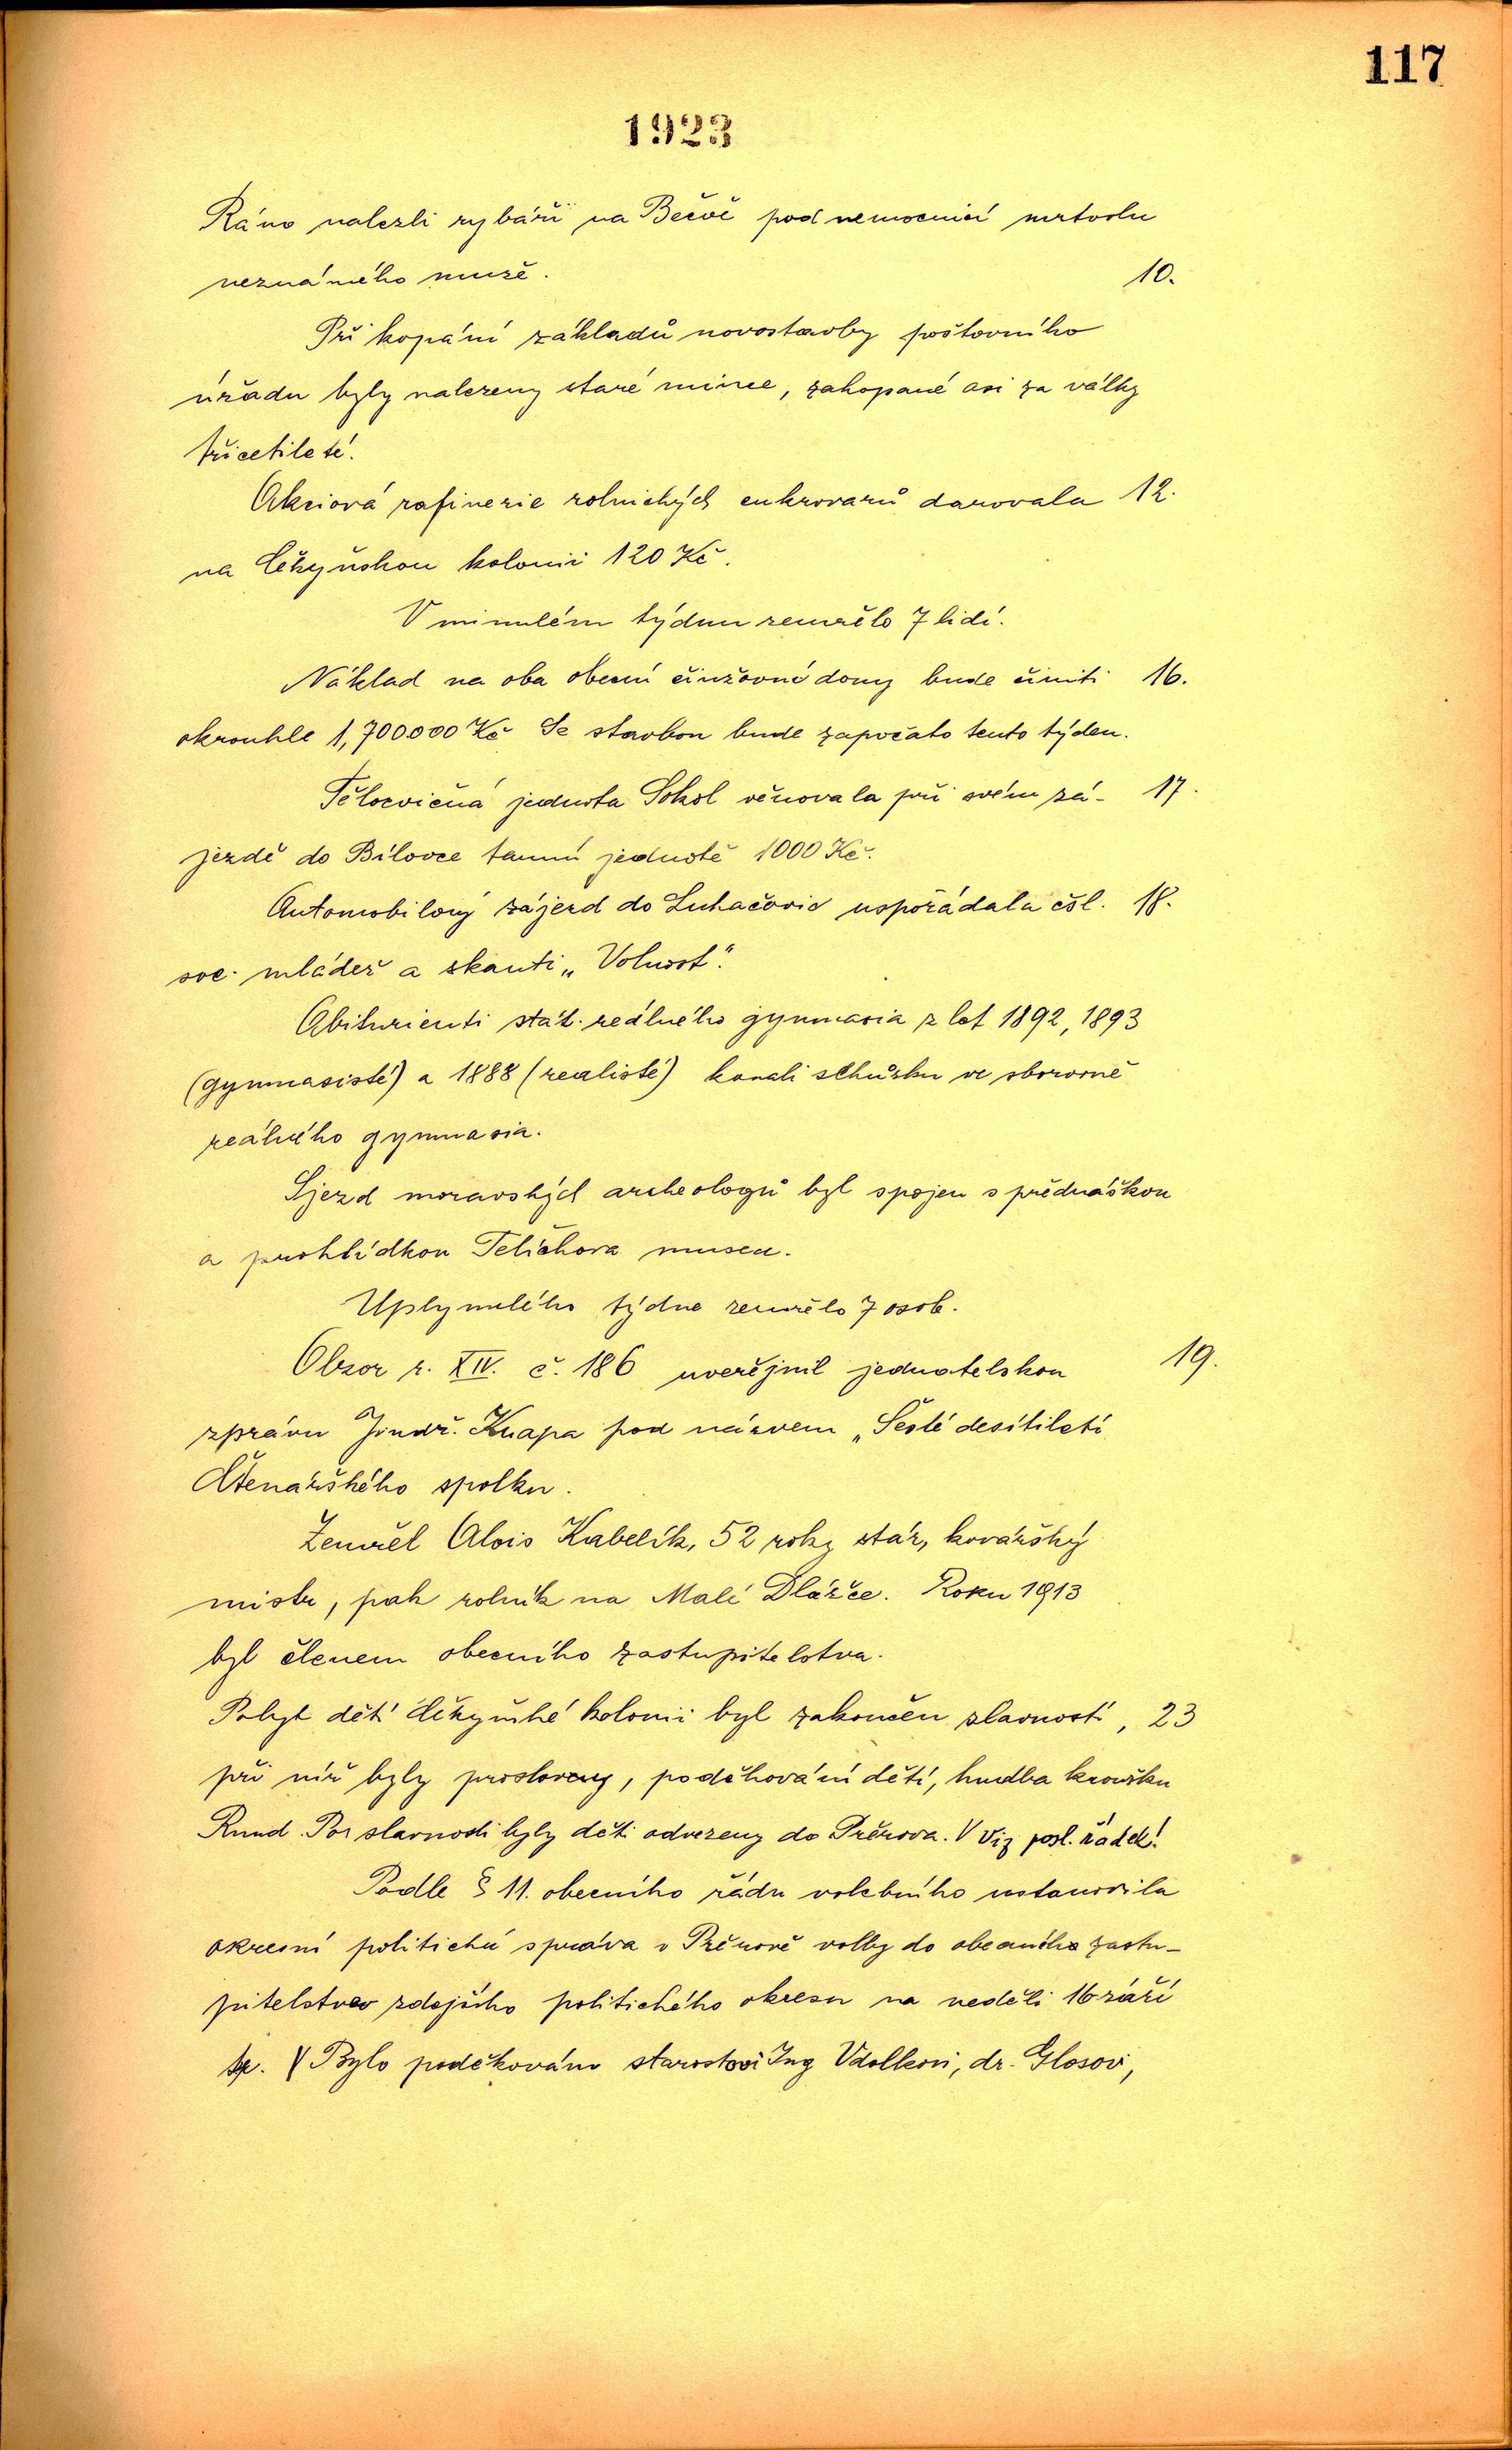 117
1923
Ráno nalezli rybáři na Bečvě pod nemocnicí mrtvolu
neznámého muže. 10.
Při kopání základů novostavby poštovního
úřadu byly nalezeny staré mince, zakopané asi za války
třicetileté.
Akciová rafinerie rolnických cukrovarů darovala 12.
na Čekyňskou kolonii 120 Kč.
V minulém týdnu zemřelo 7 lidí.
Náklad na oba obecní činžovní domy bude činiti 16.
okrouhle 1,700.000 Kč Se stavbou bude započato tento týden.
Tělocvičná jednota Sokol věnovala při svém zá- 17.
jezdě do Bílovce tamní jednotě 1000 Kč.
Automobilový zájezd do Luhačovic uspořádala čsl. 18.
soc. mládež a skauti „Volnost".
Abiturienti stát. reálného gymnasia z let 1892, 1893
(gymnasisté) a 1888 (realisté) konali schůzku ve sborovně
reálného gymnasia.
Sjezd moravských archeologů byl spojen s přednáškou
a prohlídkou Teličkova musea.
Uplynulého týdne zemřelo 7 osob.
Obzor r. XIV. č. 186 uveřejnil jednatelskou 19.
zprávu Jindř. Knapa pod názvem „Šesté desítiletí
Čtenářského spolku.
Zemřel Alois Kabelík, 52 roky stár, kovářský
mistr, pak rolník na Malé Dlážce. Roku 1913
byl členem obecního zastupitelstva.
Pobyt dětí čekyňské kolonii byl zakončen slavností, 23
při níž byly proslovy, poděkování dětí, hudba kroužku
Rund. Po slavnosti byly děti odvezeny do Přerova. V Viz posl. řádek!
Podle § 11. obecního řádu volebního ustanovila
okresní politická správa v Přerově volby do obecního zastu-
pitelstev zdejšího politického okresu na neděli 16 září
t.r. V Bylo poděkováno starostovi Ing Vdolkovi, dr. Glosovi,